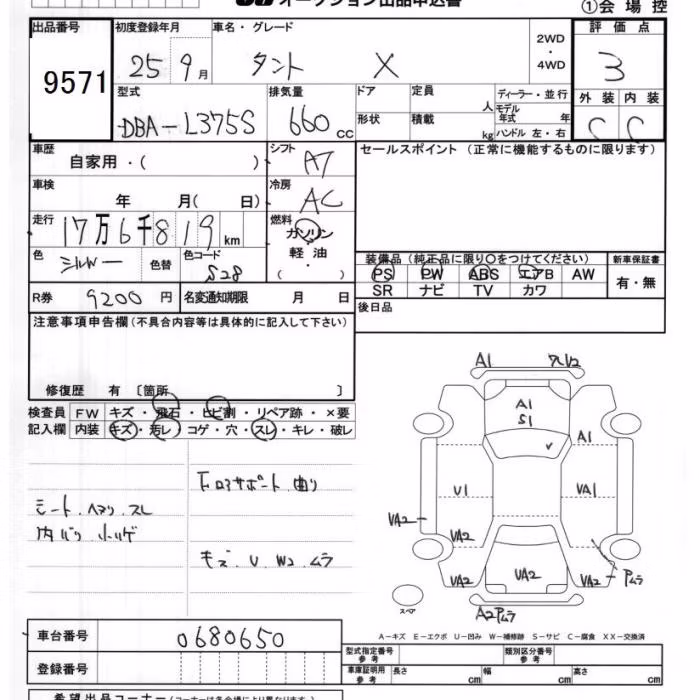 オークション出品申込書
①会場控
出品番号
9571
初度登録年月
25 9月
車名・グレード
タント X
2WD
・
4WD
評価点
3
外装 内装
C C
型式
DBA-L375S
排気量
660 cc
ドア
形状
定員
人
積載
kg
ディーラー・並行
モデル
年式 年
ハンドル 左・右
車歴
自家用・( )
シフト
AT
セールスポイント (正常に機能するものに限ります)
車検
年 月( 日)
冷房
AC
走行
17万6千819km
燃料
ガソリン
軽油
( ・ )
色
シルバー
色替
色コード
S28
装備品 (純正品に限り○をつけてください)
新車保証書
PS PW ABS エアB AW
SR ナビ TV カワ
有・無
R券
9200円
名変通知期限 月 日
後日品
注意事項申告欄(不具合内容等は具体的に記入して下さい)
修復歴 有〔箇所 〕
検査員
記入欄
FW キズ・飛石・ヒビ割・リペア跡・×要
内装 キズ・汚レ・コゲ・穴・スレ・キレ・破レ
シート ヘタリ スレ
内バリ 小ハゲ
下ロアサポート 曲り
キズ.U.W2 ムラ
A1
A1
S1
A1
U1
VA1
VA2
VA2
VA2
VA2
VA2
Pムラ
A2Pムラ
スペア
A-キズ E-エクボ U-凹み W-補修跡 S-サビ C-腐食 XX-交換済
車台番号
0680650
登録番号
型式指定番号
参考
類別区分番号
参考
車庫証明用
参考
長さ cm
幅 cm
高さ cm
希望出品コーナー